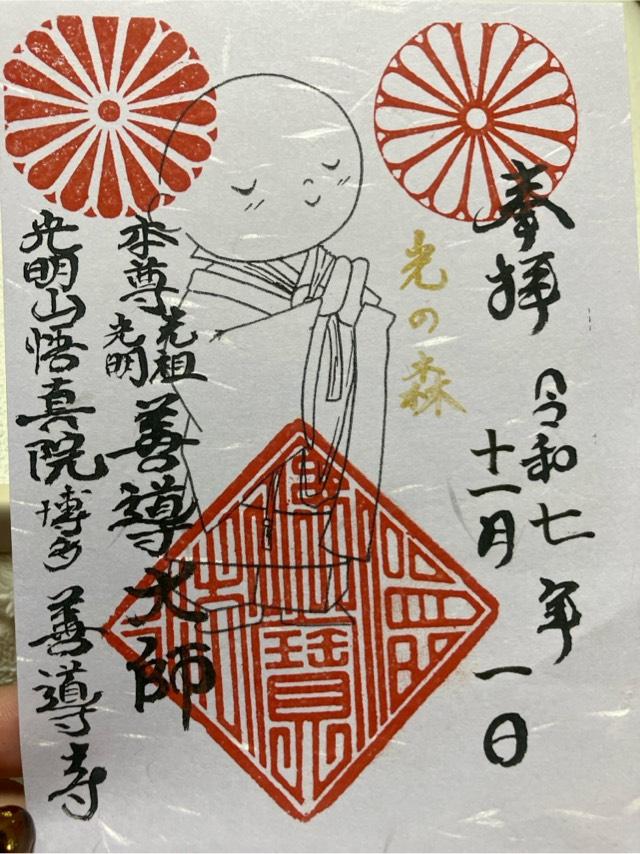 奉拝
令和七年
十一月一日
光の森
本尊
光祖
光明
善導大師
光明山悟真院
博多
善導寺
寶